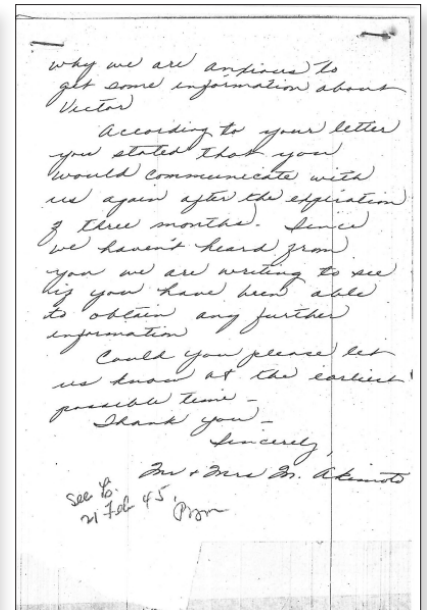 why we are anxious to
get some information about
Victor
According to your letter
you stated that you
would communicate with
us again after the expiration
of three months. Since
we haven't heard from
you we are writing to see
if you have been able
to obtain any further
information
Could you please let
us know at the earliest
possible time -
Thank you -
Sincerely,
Mr + Mrs M. Akimoto
See
21 Feb 45